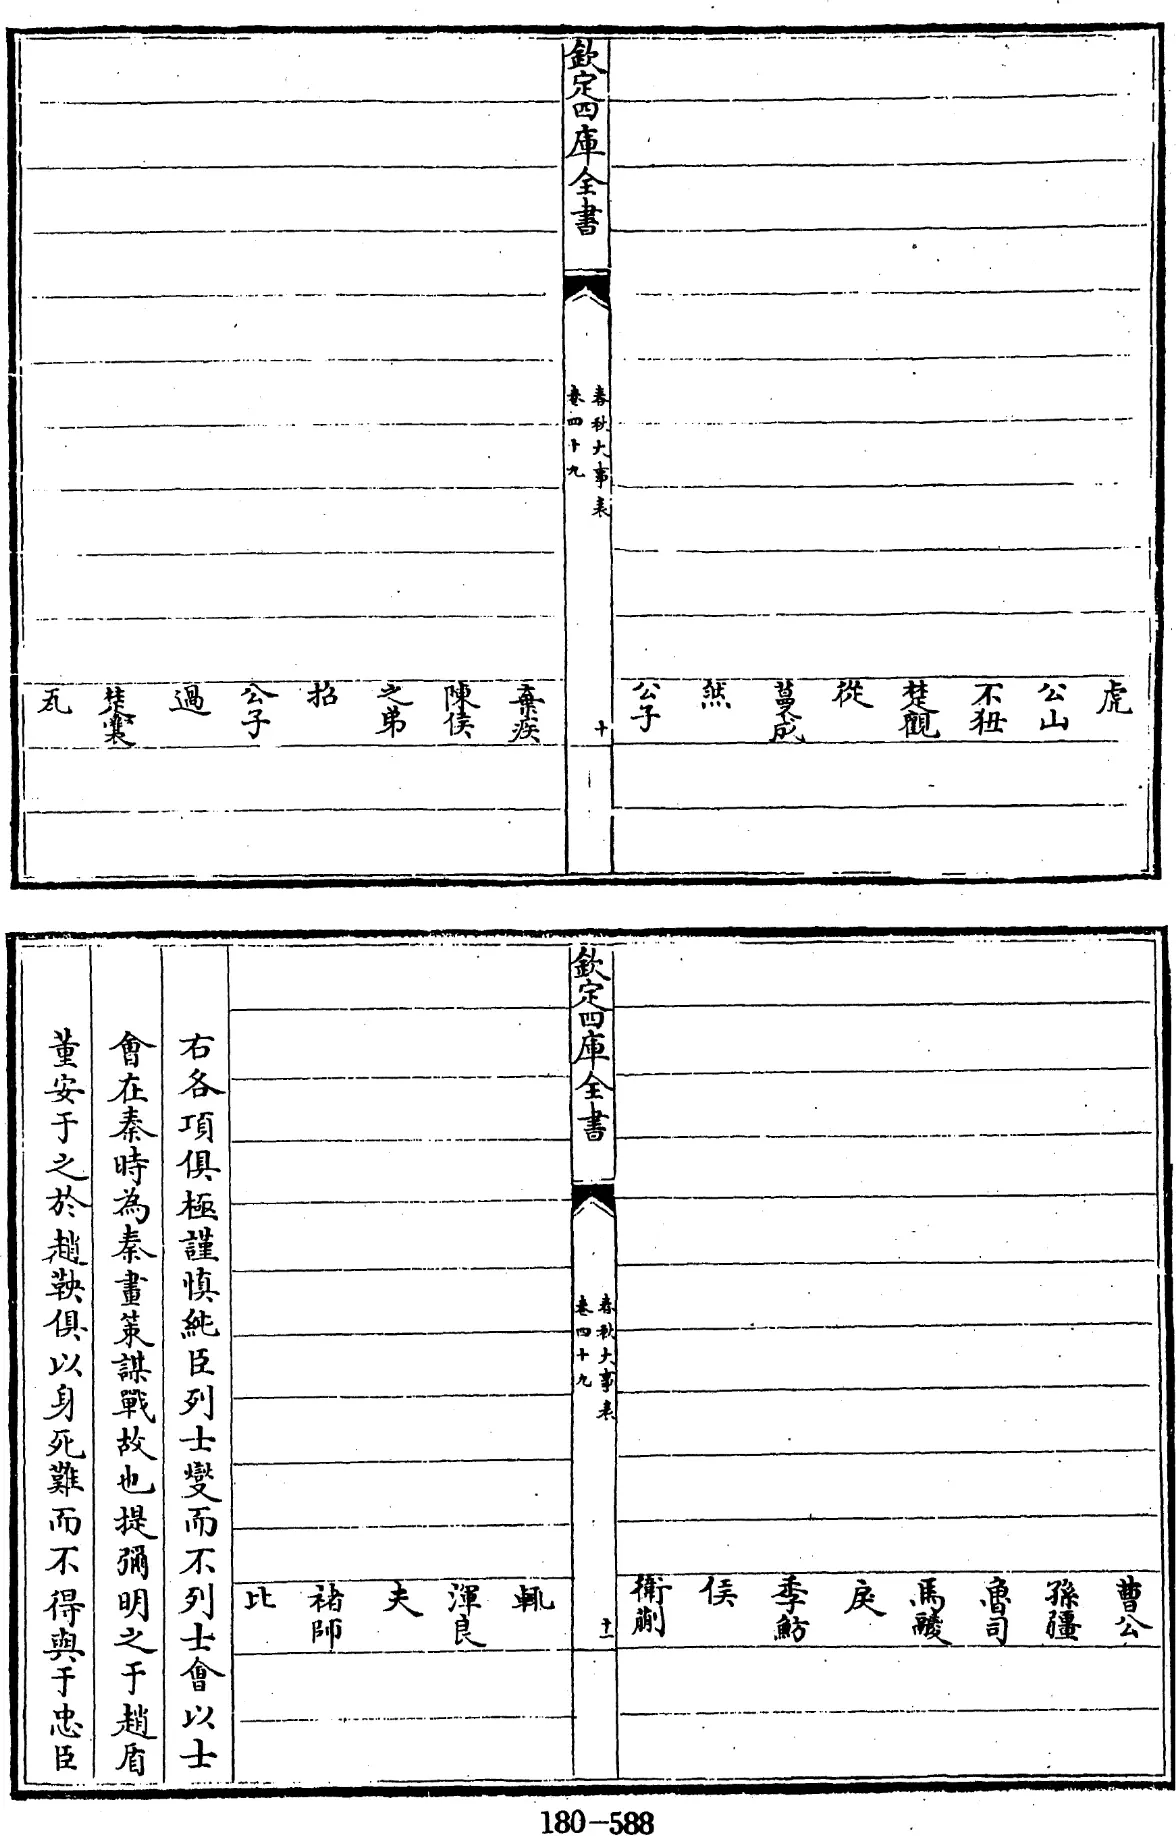 虎
公山
不狃
楚觀
從
蔓成
然
公子
欽定四庫全書
春秋大事表
卷四十九
十
棄疾
陳侯
之弟
招
公子
過
楚囊
瓦
曹公
孫彊
魯司
馬鬷
戾
季魴
侯
衛蒯
欽定四庫全書
春秋大事表
卷四十九
十一
輒
渾良
夫
褚師
比
右各項俱極謹慎純臣列士燮而不列士會以士
會在秦時為秦畫策謀戰故也提彌明之于趙盾
董安于之於趙鞅俱以身死難而不得與于忠臣
180-588